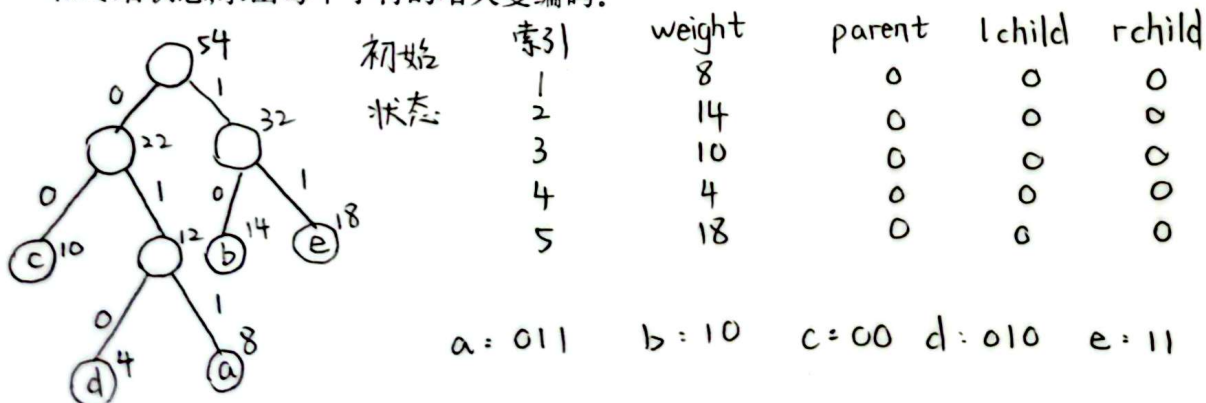 54
0 1
22 32
0 1 0 1
c 10 12 b 14 e 18
0 1
d 4 a 8
初始状态
索引 weight parent lchild rchild
1 8 0 0 0
2 14 0 0 0
3 10 0 0 0
4 4 0 0 0
5 18 0 0 0
a: 011 b: 10 c: 00 d: 010 e: 11